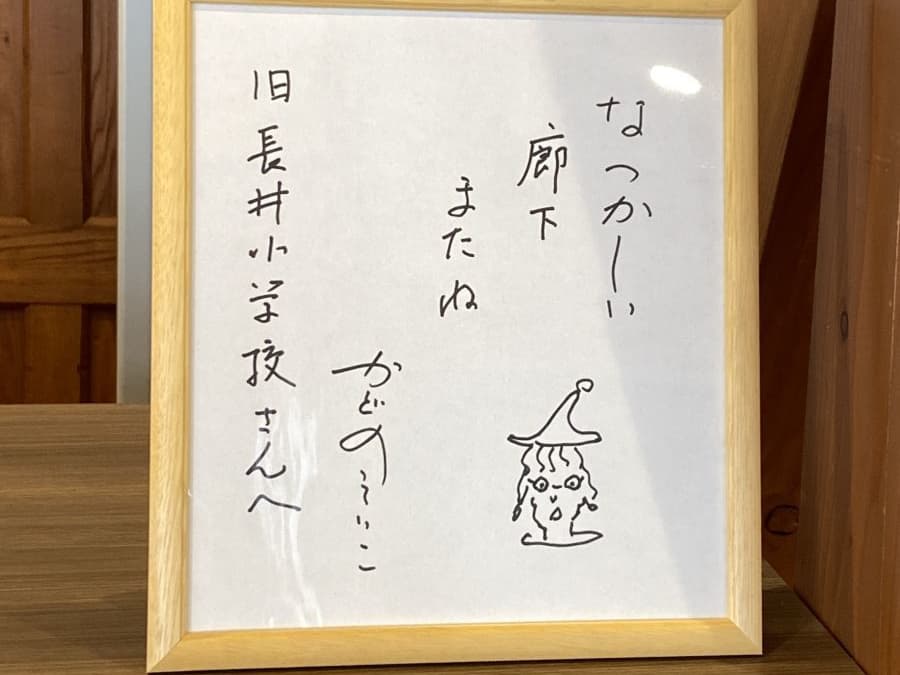 なつかしい
廊下
またね
かどのえいこ
旧長井小学校さんへ